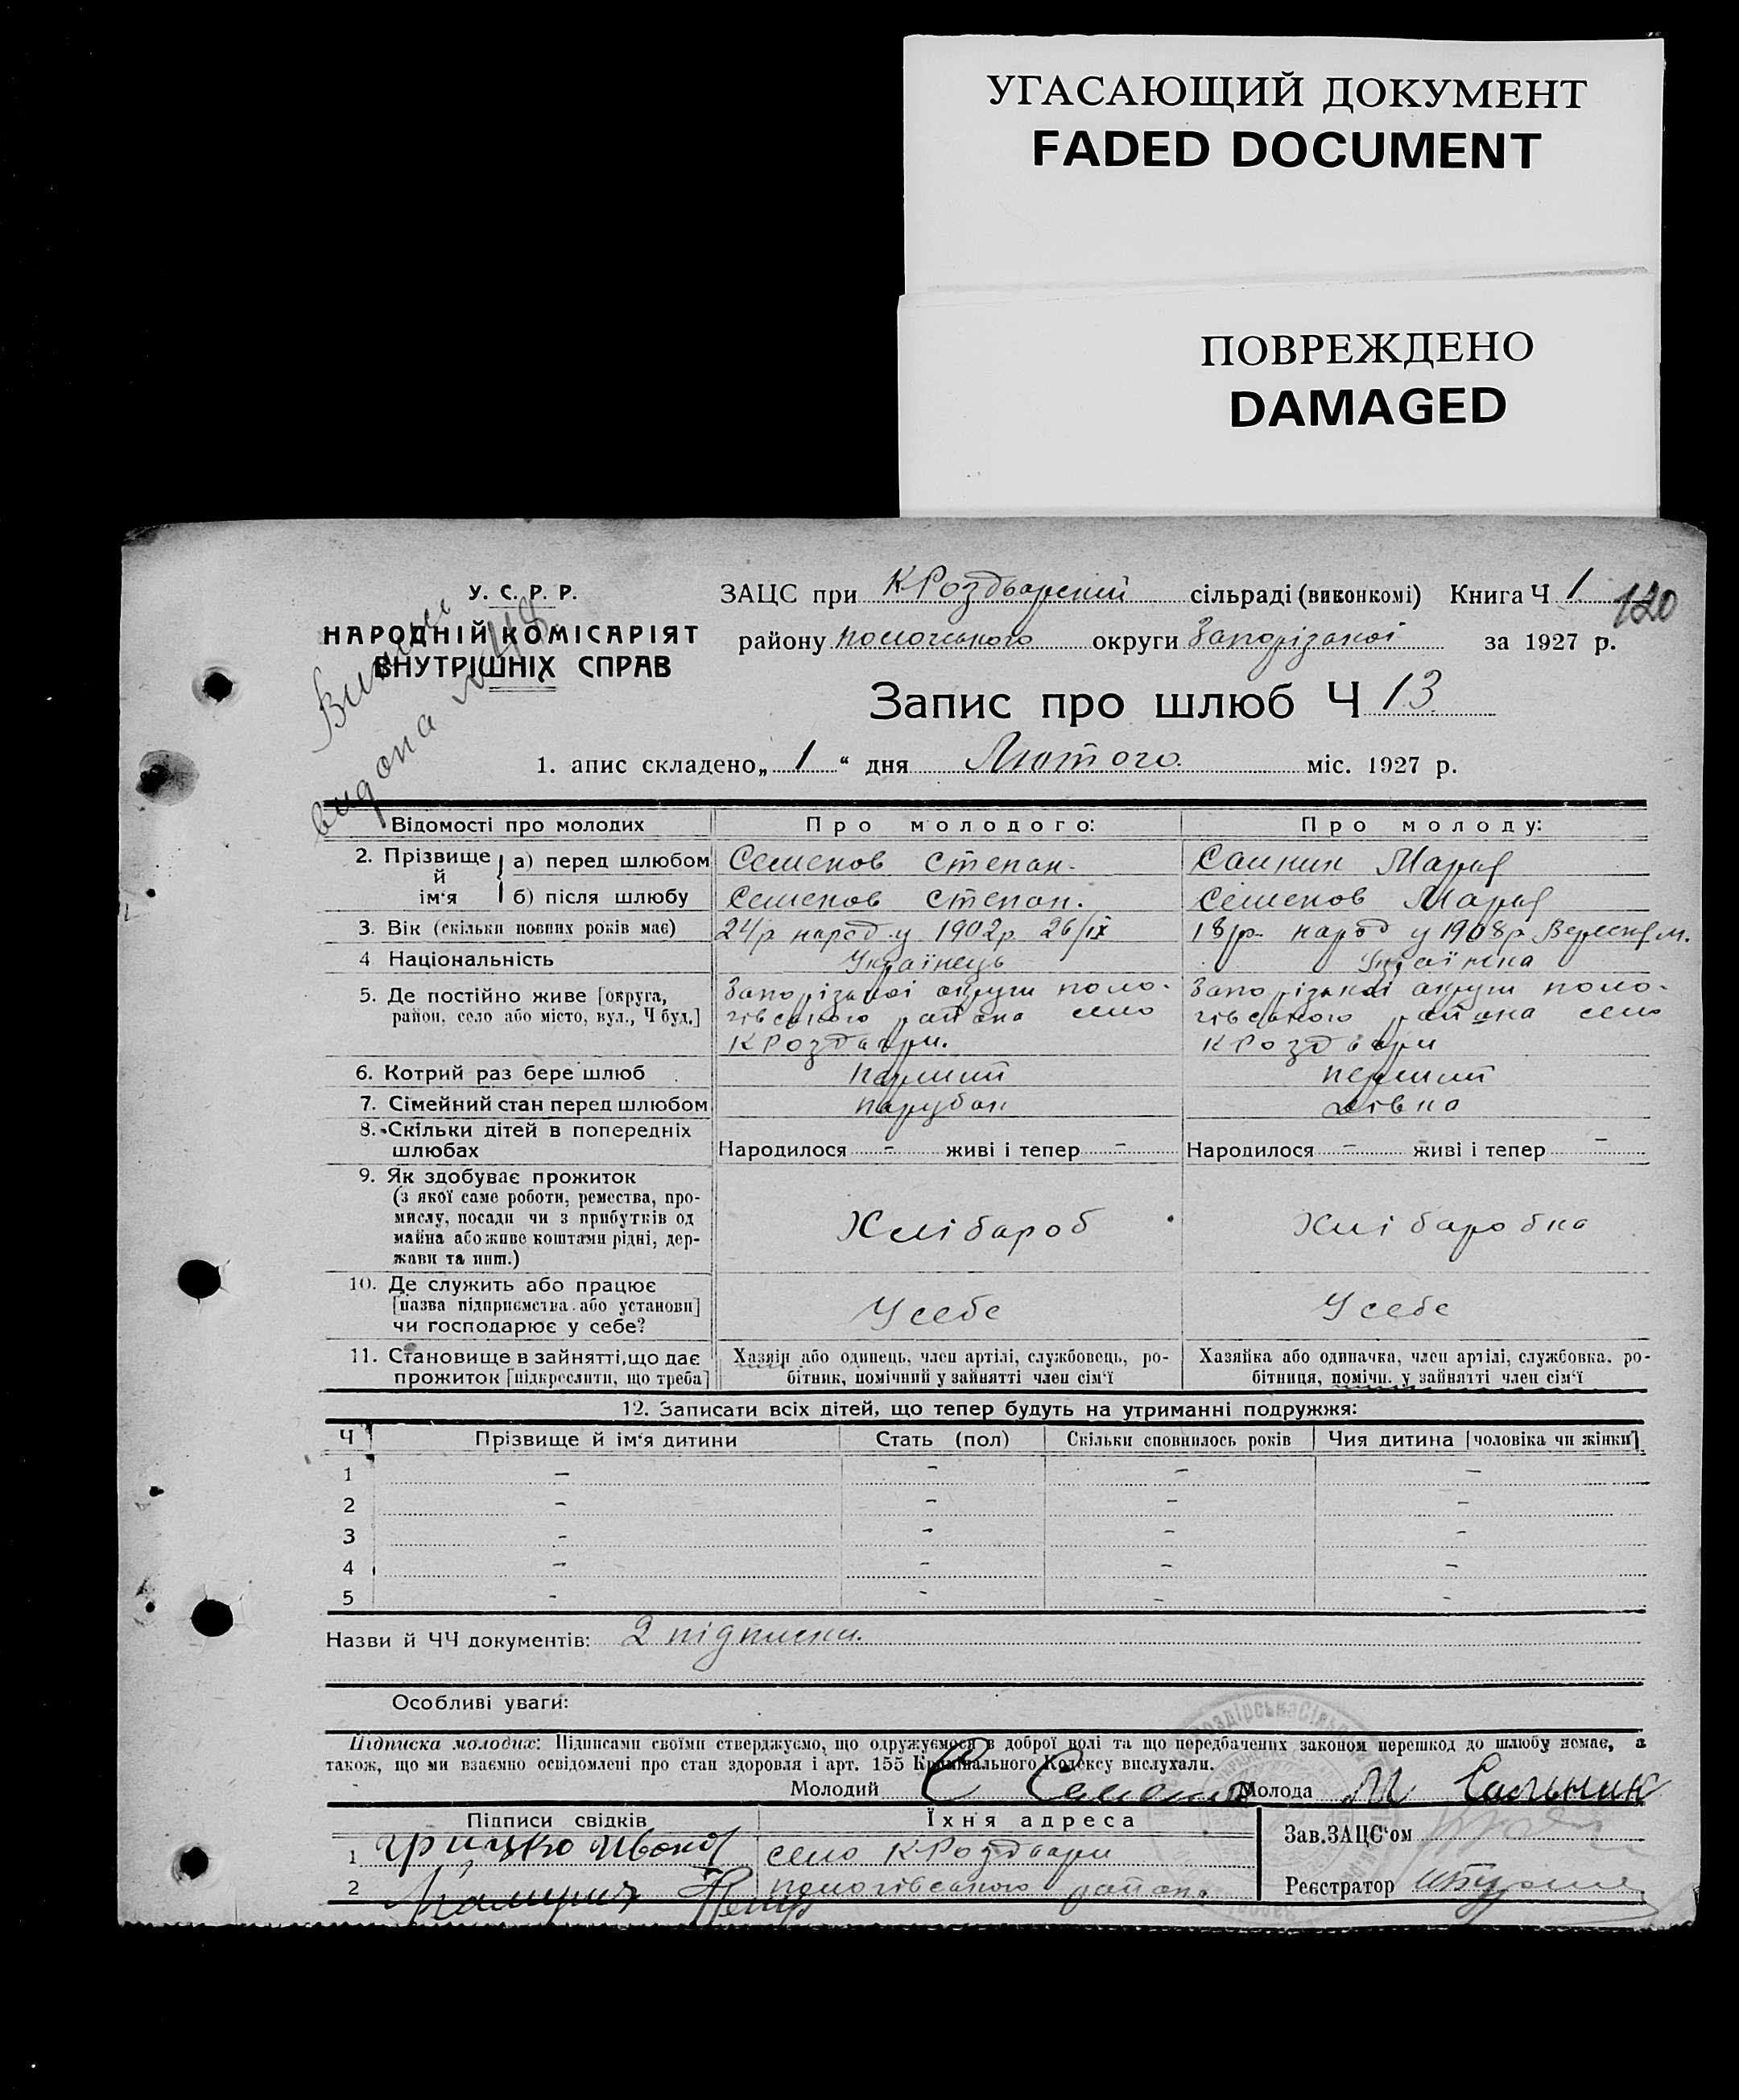 УГАСАЮЩИЙ ДОКУМЕНТ
FADED DOCUMENT
ПОВРЕЖДЕНО
DAMAGED
У. С. Р. Р.
НАРОДНІЙ КОМІСАРІЯТ
ВНУТРІШНІХ СПРАВ
видона
ЗАЦС при КРоздьорский сільраді (виконкомі) Книга Ч 1
120
району пологського округи Запорізької за 1927 р.
Запис про шлюб Ч 13
1. апис складено „ 1 “ дня Лютого міс. 1927 р.
Відомості про молодих Про молодого: Про молоду:
2. Прізвище й ім‘я а) перед шлюбом Семенов Степан. Салник Марія
б) після шлюбу Семенов Степан. Семенов Марія
3. Вік (скільки повних років має) 24/р народ. у 1902р 26/ІХ 18/р народ у 1908р Вересня м.
4 Національність Українець Українка
5. Де постійно живе [округа, Запорізької округи поло- Запорізькаї округи поло-
район, село або місто, вул., Ч буд.] гівського района село гівського района село
КРоздори. КРоздори
6. Котрий раз бере шлюб перший перший
7. Сімейний стан перед шлюбом парубок дівка
8. Скільки дітей в попередніх
шлюбах Народилося - живі і тепер - Народилося - живі і тепер -
9. Як здобуває прожиток
(з якої саме роботи, ремества, про-
мислу, посади чи з прибутків од Хлібароб Хлібаробка
майна або живе коштами рідні, дер-
жави та инш.)
10. Де служить або працює
[назва підприємства або установи] У себе У себе
чи господарює у себе?
11. Становище в зайнятті, що дає Хазяїн або одинець, член артілі, службовець, ро- Хазяйка або одиначка, член артілі, службовка, ро-
прожиток [підкреслити, що треба] бітник, помічний у зайнятті член сім‘ї бітниця, помічн. у зайнятті член сім‘ї
12. Записати всіх дітей, що тепер будуть на утриманні подружжя:
Ч Прізвище й ім‘я дитини Стать (пол) Скільки сповнилось років Чия дитина [чоловіка чи жінки]
1 - - - -
2 - - - -
3 - - - -
4 - - - -
5 - - - -
Назви й ЧЧ документів: 2 підписки.
Особливі уваги:
Підписка молодих: Підписами своїми стверджуємо, що одружуємося з доброї волі та що передбачених законом перешкод до шлюбу немає, а
також, що ми взаємно освідомлені про стан здоровля і арт. 155 Кримінального Кодексу вислухали.
Молодий С Молода М Сальник
Підписи свідків Їхня адреса Зав.ЗАЦС‘ом
1 Грицко село КРоздори
2 Петр пологівського район. Реєстратор